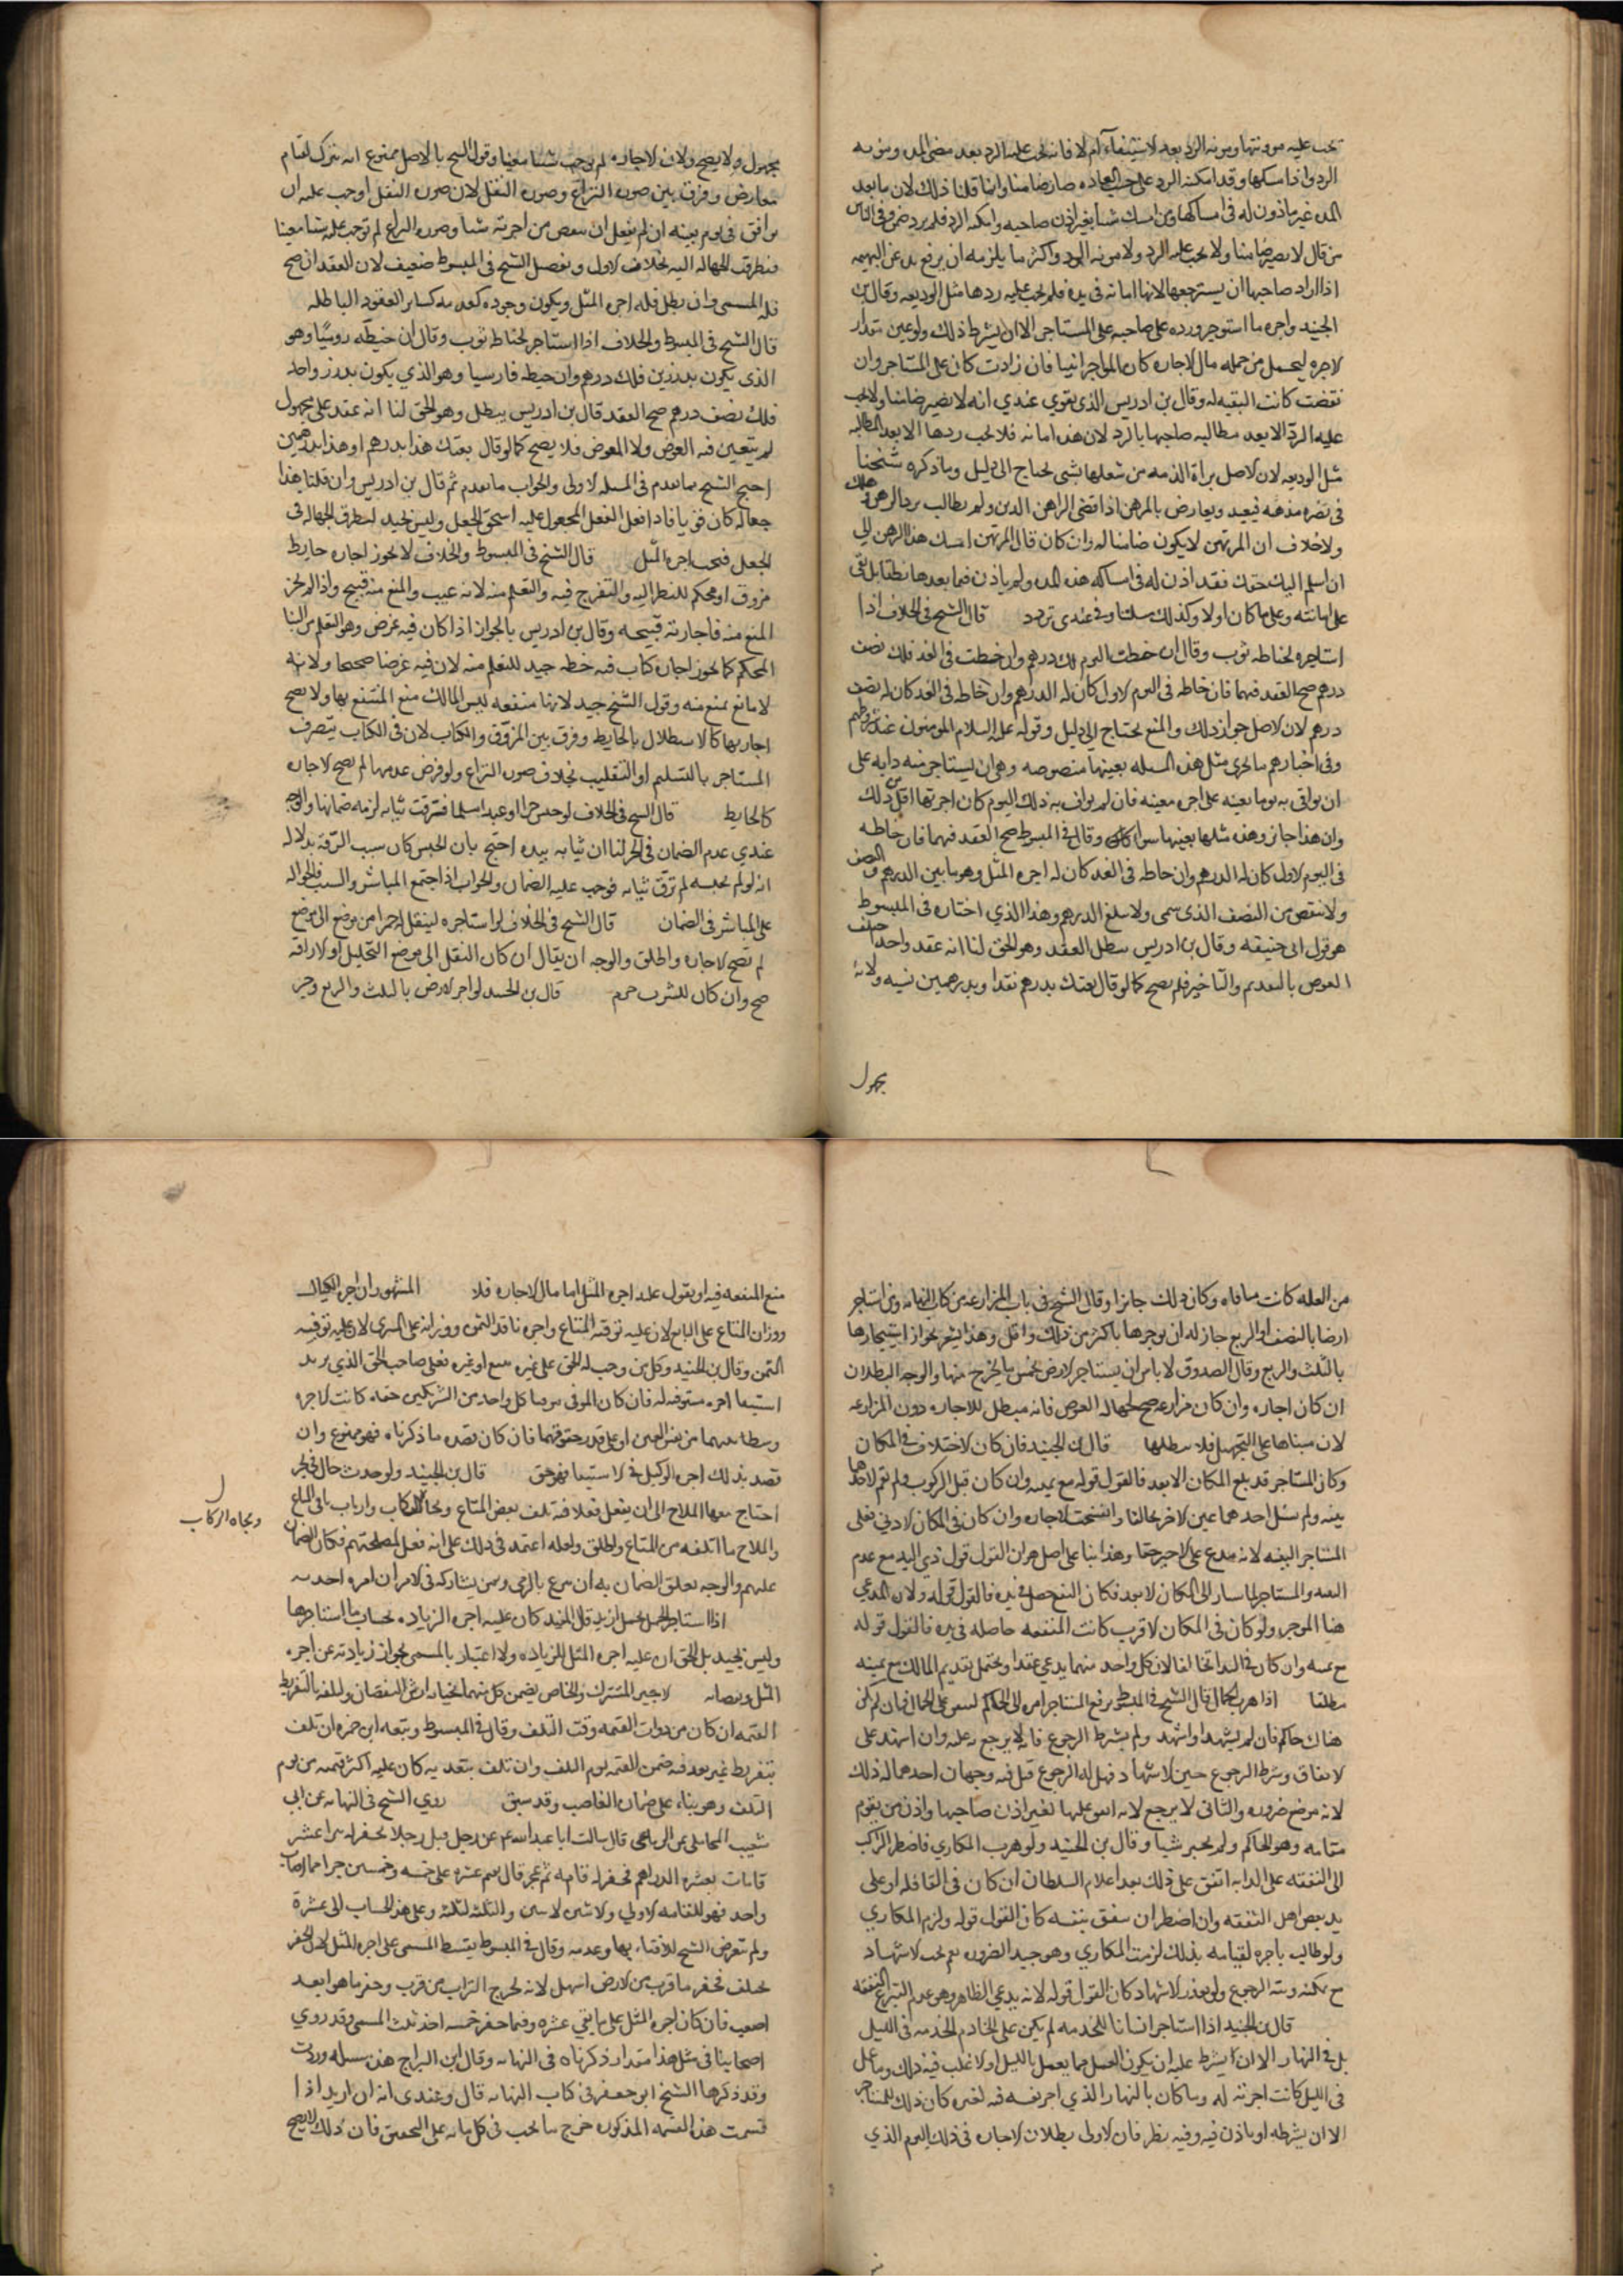 تجب عليه مونتها ومونه الرد بعد الاستيفاء ام لا فانه تجب عليه الرد بعد مضى المده ومونه
الرد واذا امسكها وقد امكنه الرد على حسب العاده صار ضامنا وانما قلنا ذلك لان ما بعد
المده غير ماذون له فى امساكها ومن امسك شيا بغير اذن صاحبه وامكنه الرد فلم يرد ضمن وفى الناس
من قال لا يصير ضامنا ولا يجب عليه الرد ولا مونه الرد واكثر ما يلزمه ان يرفع يده عن البهيمه
اذا اراد صاحبها ان يسترجعها لانها امانه فى يده فلم يجب عليه ردها مثل الوديعه وقال بن
الجنيد واجره ما استوجر ورده على صاحبه على المستاجر الا ان يشترط ذلك ولو عين مقدار
الاجره ليحمل من جمله مال الاجاره كان على المواجر انيا فان زادت كان على المستاجر وان
نقصت كانت البقيه له وقال بن ادريس الذى يقوي عندي انه لا يصير ضامنا ولا يجب
عليه الرد الا بعد مطالبه صاحبها بالرد لان هذه امانه فلا يجب ردها الا بعد المطالبه
مثل الوديعه لان الاصل براة الذمه من شغلها بشى يحتاج الى دليل وما ذكره شيخنا
فى نصره مذهبه فبعيد ويعارض بالمرهن اذا قضى الراهن الدين ولم يطالب برد الرهن وهلك
ولا خلاف ان المرتهن لا يكون ضامنا له وان كان قال المرتهن امسك هذا الرهن الى
ان اسلم اليك حقك فقد اذن له فى امساكه هذه المده ولم ياذن فيما بعدها نطقا بل بقى
على امانته وعلى ما كان اولا وكذلك مسلتنا وفى عندى تردد قال الشيخ فى الخلاف اذا
استاجره لخياطه ثوب وقال ان خطت اليوم فلك درهم وان خطت فى الغد فلك نصف
درهم صح العقد فيهما فان خاطه فى اليوم الاول كان له الدرهم وان خاطه فى الغد كان له نصف
درهم لان الاصل جواز ذلك والمنع يحتاج الى دليل وقوله عليه السلام المومنون عند شروطهم
وفى اخبارهم ما يجرى مثل هذه المسله بعينها منصوصه وهى ان يستاجر منه دابه على
ان يوافى به يوما بعينه على اجره معينه فان لم يواف به ذلك اليوم كان اجرتها اقل من ذلك
وان هذا جائز وهذه مثلها بعينها سوا وقال فى المبسوط صح العقد فيهما فان خاطه
فى اليوم الاول كان له الدرهم وان خاطه فى الغد كان له اجره المثل وهو ما بين الدرهم والنصف
ولا ينقص من النصف الذى سمى ولا يبلغ الدرهم وهذا الذي اختاره فى المبسوط
هو قول ابى حنيفه وقال بن ادريس يبطل العقد وهو الحق لنا انه عقد واحد اختلف
العوض بالتقديم والتاخير فلم يصح كما لو قال بعتك بدرهم نقدا وبدرهمين نسيه ولانه
مجهول
مجهول ولا يصح ولان الاجاره لم توجب شيئا معينا وقول الشيخ بالاصل ممنوع انه يترك لقيام
معارض وفرق بين صوره النزاع وصوره النقل لان صوره النقل اوجب عليه ان
يوافى فى يوم بعينه ان لم يفعل ان ينقص من اجرته شيا وصوره النزاع لم توجب عليه شيئا معينا
فتطرقت الجهاله اليه بخلاف الاول وتفصيل الشيخ فى المبسوط ضعيف لان العقد ان صح
فله المسمى وان بطل فله اجره المثل ويكون وجوده كعدمه كساير العقود الباطله
قال الشيخ فى المبسوط والخلاف اذا استاجر لخياطه ثوب وقال ان خيطه روميا وهو
الذى يكون بدرزين فلك درهم وان خيطه فارسيا وهو الذي يكون بدرز واحد
فلك نصف درهم صح العقد قال بن ادريس يبطل وهو الحق لنا انه عقد على مجهول
لم يتعين فيه العوض ولا المعوض فلا يصح كما لو قال بعتك هذا بدرهم او هذا بدرهمين
احتج الشيخ بما تقدم فى المسله الاولى والجواب ما تقدم ثم قال بن ادريس وان قلنا هذا
جعاله كان قويا فاذا فعل الفعل المجعول عليه استحق الجعل وليس بجيد لتطرق الجهاله فى
الجعل فتجب اجره المثل قال الشيخ فى المبسوط والخلاف لا يجوز اجاره حايط
مزوق او محكم للنظر اليه والتفرج فيه والتعلم منه لانه عيب والمنع منه قبيح واذا لم يجز
المنع منه فاجارته قبيحه وقال بن ادريس بالجواز اذا كان فيه غرض وهو التعلم من البنا
المحكم كما يجوز اجاره كتاب فيه خط جيد للتعلم منه لان فيه غرضا صحيحا ولانه
لا مانع يمنع منه وقول الشيخ جيد لانها منفعه ليس للمالك منع المنتفع بها ولا يصح
اجارتها كالاستظلال بالحايط وفرق بين المزوق والكتاب لان فى الكتاب يتصرف
المستاجر بالتسليم او التقليب بخلاف صوره النزاع ولو فرض عدمهما لم تصح الاجاره
كالحايط قال الشيخ فى الخلاف لو حبس حرا او عبدا مسلما فسرقت ثيابه لزمه ضمانها والوجه
عندي عدم الضمان فى الحر لنا ان ثيابه بيده احتج بان الحبس كان سبب السرقه بدلاله
انه لو لم يحبسه لم تسرق ثيابه فوجب عليه الضمان والجواب اذا اجتمع المباشر والسبب فالحواله
على المباشر فى الضمان قال الشيخ فى الخلاف لو استاجره لينقل له خمرا من موضع الى موضع
لم تصح الاجاره واطلق والوجه ان يقال ان كان النقل الى موضع التحليل او الاراقه
صح وان كان للشرب حرم قال بن الجنيد لو اجر الارض بالثلث والربع وجز
من الغله كانت مساقاه وكان ذلك جائزا وقال الشيخ فى باب المزارعه من كتاب النهايه ومن استاجر
ارضا بالنصف او الربع جاز له ان يوجرها باكثر من ذلك واقل وهذا يشعر بجواز استيجارها
بالثلث والربع وقال الصدوق لا باس ان يستاجر الارض بخمس ما يخرج منها والوجه البطلان
ان كان اجاره وان كان مزارعه صح لجهاله العوض فانه مبطل للاجاره دون المزارعه
لان مبناها على التجهيل فلا يبطلها قال بن الجنيد فان كان الاختلاف فى المكان
وكان المستاجر قد بلغ المكان الابعد فالقول قوله مع يمينه وان كان قبل الركوب ولم تقم لاحدهما
بينه ولم يسئل احدهما عين الاخر تحالفا وانفسخت الاجاره وان كان فى المكان الادنى فعلى
المستاجر البينه لانه مدع على الاجير حقا وهذا بناء على اصل هو ان القول قول ذي اليد مع عدم
البينه والمستاجر لما سار الى المكان الابعد فكان النفع حصل فى يده فالقول قوله ولان المدعي
هنا الموجر ولو كان فى المكان الاقرب كانت المنفعه حاصله فى يده فالقول قوله
مع يمينه وان كان فى البداه تحالفا لان كل واحد منهما يدعي عقدا ويحتمل تقديم المالك مع يمينه
مطلقا اذا هرب الجمال قال الشيخ فى المبسوط يرفع المستاجر امره الى الحاكم لينفق على الجمال فان لم يكن
هناك حاكم فان لم يشهد او اشهد ولم يشترط الرجوع فانه لا يرجع عليه وان اشهد على
الانفاق وشرط الرجوع حين الاشهاد فهل له الرجوع قيل فيه وجهان احدهما له ذلك
لانه موضع ضروره والثانى لا يرجع لانه انفق عليها بغير اذن صاحبها واذن من يقوم
مقامه وهو الحاكم ولم يخير شيا وقال بن الجنيد ولو هرب المكاري فاضطر الراكب
الى النفقه على الدابه انفق على ذلك بعد اعلام السلطان ان كان فى القافله او على
يد بعض اهل الثقه وان اضطر ان ينفق بنفسه كان القول قوله ولزم المكاري
ولو طالب باجره لقيامه بذلك لزمت المكاري وهو جيد لضروره نعم يجب الاشهاد
مع مكنه ونيه الرجوع ولو تعذر الاشهاد كان القول قوله لانه يدعي الظاهر وهو عدم التبرع بالنفقه
قال بن الجنيد اذا استاجر انسانا للخدمه لم يكن على الخادم الخدمه فى الليل
بل فى النهار الا ان يشرط عليه ان يكون العمل مما يعمل بالليل او الاغلب فيه ذلك وما عمل
فى الليل كانت اجرته له وما كان بالنهار الذي اجر نفسه فيه لغيره كان ذلك للمستاجر
الا ان يشرطه او ياذن فيه وفيه نظر فان الاولى بطلان الاجاره فى ذلك اليوم الذي
منع المنفعه فيه او يقول عليه اجره المثل اما مال الاجاره فلا المشهور ان اجره الكيال
ووزان المتاع على البايع لان عليه توفيه المتاع واجره ناقد الثمن ووزانه على المشتري لان عليه توفيه
الثمن وقال بن الجنيد وكل من وجب له الحق على غيره ببيع او غيره فعلى صاحب الحق الذي يريد
استيفا اجره مستوفيه له فان كان الموفى كل واحد من الشريكين حقه كانت الاجره
وسطا بينهما من نفس العين او على قدر حقوقهما فان كان قصده ما ذكرناه فهو ممنوع وان
قصد بذلك اجره الوكيل فى الاستيفا فهو حق قال بن الجنيد ولو حدث حال فى البحر
احتاج معها الملاح الى ان يفعل فعلا فيه تلف بعض المتاع ونجاه الركاب وارباب باقى المتاع
والملاح ما اتلفه من المتاع واطلق ولعله اعتمد فى ذلك على انه فعل لمصلحتهم فكان الضمان
عليهم والوجه تعلق الضمان به ان تبرع بالرمى وبمن يشاركه فى الامر ان امره احد به
اذا استاجر لحمل فحمل ازيد قال المفيد كان عليه اجره الزياده بحساب ما استاجرها
وليس بجيد بل الحق ان عليه اجره المثل للزياده ولا اعتبار بالمسمى لجواز زيادته عن اجره
المثل ونقصانه الاجير المشترك والخاص يضمن كل منهما بجنايته ارش النقصان وللتلف بالتفريط
القيمه ان كان من ذوات القيمه وقت التلف وقال فى المبسوط وتبعه ابن حمزه ان تلف
بتفريط غير تعد فيه ضمن القيمه يوم التلف وان تلف بتعديه كان عليه اكثر قيمه من يوم
التلف وهو بناء على ضمان الغاصب وقد سبق روي الشيخ فى النهايه عن ابى
شعيب المحاملى عن الرفاعى قال سالت ابا عبد الله ع عن رجل قبل رجلا يحفر له بيرا عشر
قامات بعشره الدراهم فحفر له قامه ثم عجز قال يقسم عشره على خمسه وخمسين جزا فما اصاب
واحد فهو للقامه الاولى والاثنين للاثنين والثلثه للثلثه وعلى هذا الحساب الى عشرة
ولم يتعرض الشيخ للافتاء بها وعدمه وقال فى المبسوط يقسط المسمى على اجره المثل لان الحفر
يختلف فحفر ما قرب من الارض اسهل لانه يخرج التراب من قرب وحفر ما هو ابعد
اصعب فان كان اجره المثل على ما بقي عشره وفيما حفر خمسه اخذ ثلث المسمى وقد روي
اصحابنا فى مثل هذا مقدار ذكرناه فى النهايه وقال ابن البراج هذه مسله وردت
وقد ذكرها الشيخ ابو جعفر فى كتاب النهايه قال وعندى انه ان اريد اذا
قسمت هذه القسمه المذكوره خرج ما يجب فى كل قامه على التحقيق فان ذلك لا يصح
ونجاه الركاب